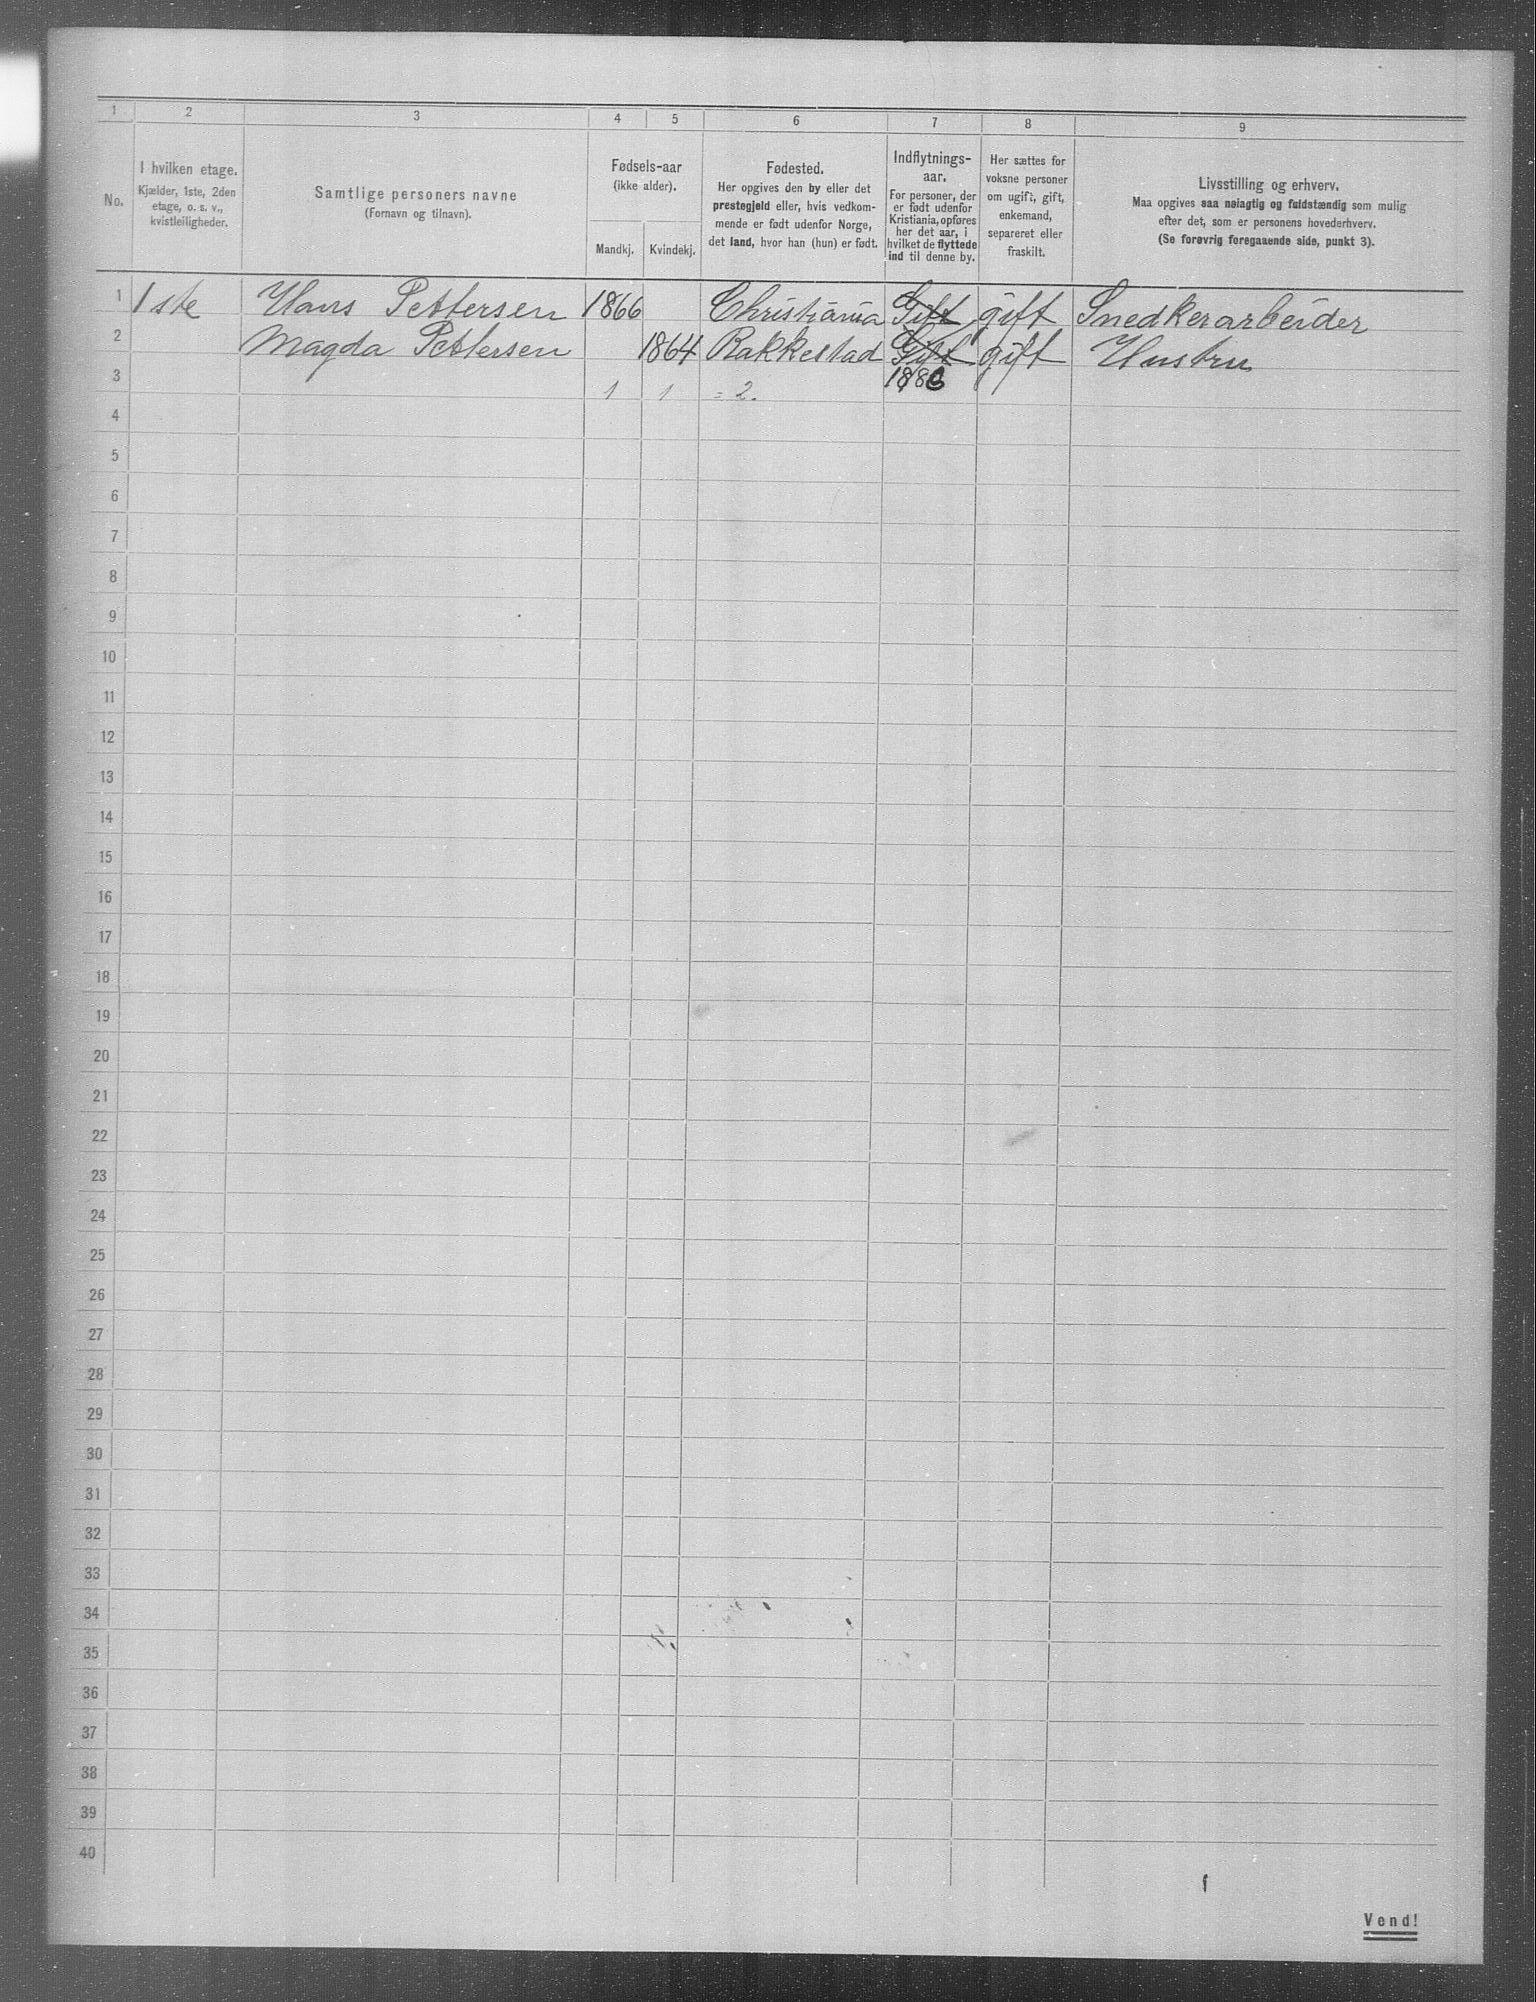 1 2 3 4 5 6 7 8 9
No.
I hvilken etage.
Kjælder, 1ste, 2den
etage, o. s. v.,
kvistleiligheder.
Samtlige personers navne
(Fornavn og tilnavn).
Fødsels-aar
(ikke alder).
Mandkj. Kvindekj.
Fødested.
Her opgives den by eller det
prestegjeld eller, hvis vedkom-
mende er født udenfor Norge,
det land, hvor han (hun) er født.
Indflytnings-
aar.
For personer, der
er født udenfor
Kristiania, opføres
her det aar, i
hvilket de flyttede
ind til denne by.
Her sættes for
voksne personer
om ugift, gift,
enkemand,
separeret eller
fraskilt.
Livsstilling og erhverv.
Maa opgives saa nøiagtig og fuldstændig som mulig
efter det, som er personens hovederhverv.
(Se forøvrig foregaaende side, punkt 3).
1 1ste Hans Pettersen 1866 Christiania Gift gift Snedkerarbeider
2 Magda Pettersen 1864 Rakkestad Gift gift Hustru
3 1 1 = 2.
4
5
6
7
8
9
10
11
12
13
14
15
16
17
18
19
20
21
22
23
24
25
26
27
28
29
30
31
32
33
34
35
36
37
38
39
40
Vend!